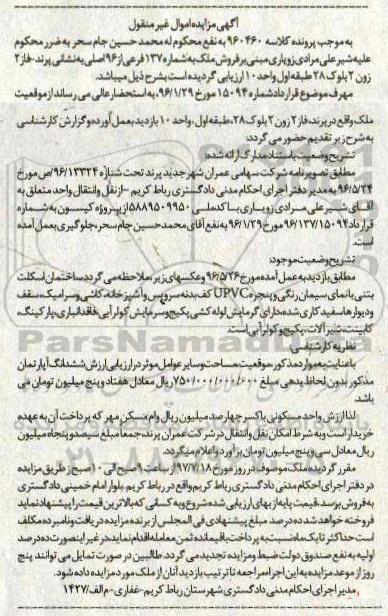 آگهی مزایده اموال غیر منقول
به موجب پرونده کلاسه ۹۶۰۴۶۰ به نفع محکوم له محمد حسین جام سحر به ضرر محکوم
علیه شیر علی مرادی زوباری مبنی بر فروش ملک به شماره ۱۳۷ فرعی از ۹۶ اصلی به نشانی پرند-فاز ۲
زون ۲ بلوک ۲۸ طبقه اول واحد ۱۰ ارزیابی گردیده است بشرح ذیل میباشد.
مهرف موضوع قرارداد شماره ۱۵۰۹۴ مورخ ۹۶/۱/۲۹، به استحضار عالی می رساند از موقعیت
ملک واقع در پرند، فاز ۲ زون ۲ بلوک ۲۸، طبقه اول، واحد ۱۰ بازدید بعمل آورده و گزارش کارشناسی
به شرح زیر تقدیم حضور می گردد:
تشریح وضعیت باستناد مدارک ارائه شده:
مطابق تصویر نامه شرکت سهامی عمران شهر جدید پرند تحت شماره ۹۶/۱۳۳۲۴/ص مورخ
۹۶/۵/۲۴ به مدیر دفتر اجرای احکام مدنی دادگستری رباط کریم - از نقل وانتقال واحد متعلق به
آقای شیر علی مرادی زوباری با کد ملی ۵۸۸۹۵۰۹۹۵۰ از پروژه کیسون به شماره
قرارداد ۹۶/۱۳۷/۱۵۰۹۴ مورخ ۹۶/۱/۲۹ به نفع آقای محمد حسین جام سحر، جلوگیری بعمل آمده
است.
تشریح وضعیت موجود:
مطابق بازدید به عمل آمده مورخ ۹۶/۵/۲۶ و عکسهای زیر، ملاحظه می گردد ساختمان اسکلت
بتنی بانمای سیمان رنگی و پنجره UPVC کف، بدنه سرویس و آشپزخانه، کاشی وسرامیک، سقف
و دیوارها سفید کاری شده دارای گرمایش لوله کشی پکیج وسرمایش کولر آبی، فاقد انباری، پارکینگ،
کابینت، شیرآلات، پکیج و کولر آبی است.
نظریه کارشناسی:
باعنایت به موارد مذکور، موقعیت، مساحت و سایر عوامل موثر در ارزیابی ارزش ششدانگ آپارتمان
مذکور بدون لحاظ بدهی مبلغ ۷۵۰/۰۰۰/۰۰۰ ریال معادل هفتاد و پنج میلیون تومان می
باشد.
لذا ارزش واحد مسکونی با کسر چهارصد میلیون ریال وام مسکن مهر که پرداخت آن به عهده
خریدار است و به شرط امکان نقل وانتقال در شرکت عمران پرند، جمعا مبلغ سیصد و پنجاه میلیون
ریال معادل سی و پنج میلیون تومان برآورد و اعلام میگردد.
مقرر گردیده ملک موصوف در روز مورخ ۹۷/۷/۱۸ از ساعت ۹ صبح الی ۱۰ صبح از طریق مزایده
در دفتر اجرای احکام مدنی دادگستری رباط کریم واقع در رباط کریم بلوار امام خمینی دادگستری
به فروش برسد. قیمت پایه از بهای ارزیابی شده شروع و به کسانی که بالاترین قیمت را پیشنهاد نماید
فروخته خواهد شد ده درصد مبلغ پیشنهادی فی المجلس از برنده مزایده دریافت و نامبرده مکلف
است حداکثر تا یک ماه نسبت به پرداخت باقیمانده ثمن معامله اقدام نماید در غیر اینصورت ده درصد
اولیه به نفع صندوق دولت ضبط و مزایده تجدید می گردد. طالبین در صورت تمایل می توانند پنج
روز از موعد مزایده به این اجرا مراجعه تا ترتیب بازدید آنان از ملک مورد مزایده داده شود.
مدیر اجرای احکام مدنی دادگستری شهرستان رباط کریم-غفاری-م الف/۱۴۲۷